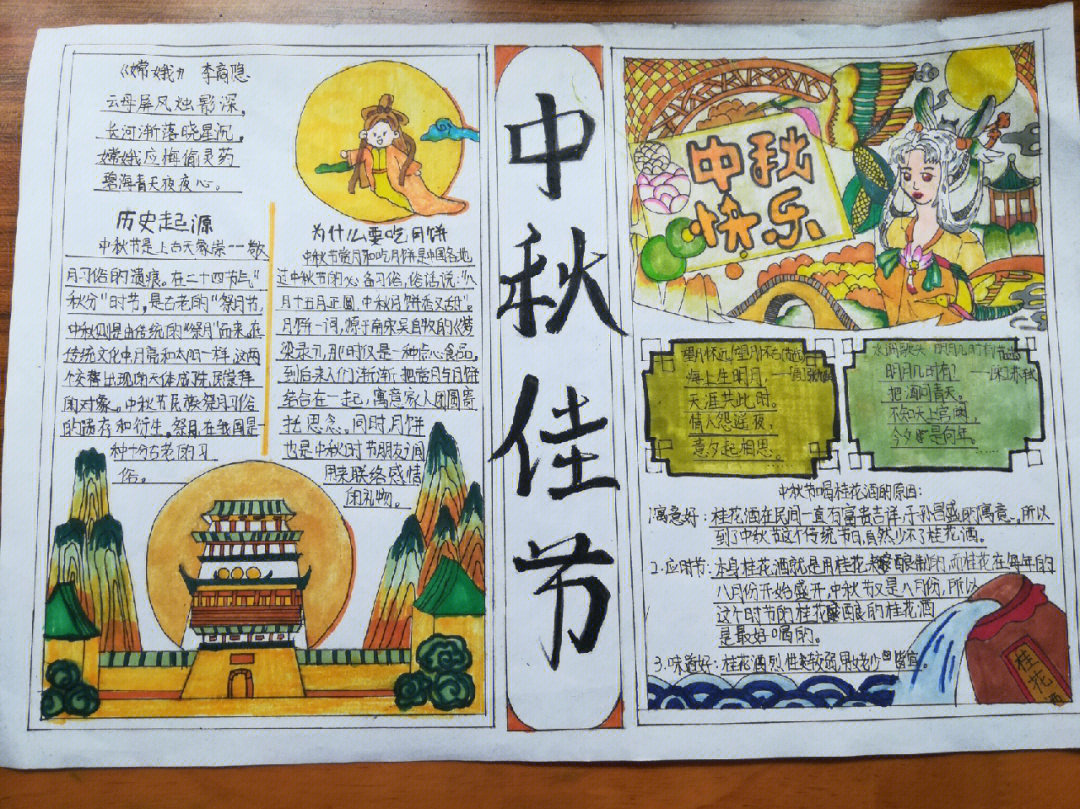 《嫦娥》 李商隐
云母屏风烛影深，
长河渐落晓星沉。
嫦娥应悔偷灵药
碧海青天夜夜心。
历史起源
中秋节是上古天象崇--敬
月习俗的遗痕。在二十四节气“
秋分”时节，是古老的“祭月节，
中秋则是由传统的“祭月”而来。在
传统文化中月亮和太阳一样，这两
个交替出现的天体成 先民崇拜
闲对象。中秋节民族祭月习俗
的遗存和衍生。祭月，在我国是一
种十分古老的习
俗。
为什么要吃月饼
中秋节赏月和吃月饼是中国各地
过中秋节的必备习俗，俗话说：“八
月十五月正圆，中秋月饼香又甜”。
月饼一词，源于南宋吴自牧的《梦
梁录》，那时仅是一种点心食品，
到后来人们渐渐把赏月与月饼
结合在一起，寓意家人团圆寄
托思念。同时，月饼
也是中秋时节朋友间
用来联络感情
闲礼物。
中秋佳节
中秋
快乐
望月怀远/望月怀古
海上生明月，
天涯共此时。
情人怨遥夜，
竟夕起相思。
水调歌头 明月几时有
明月几时有？
把酒问青天。
不知天上宫阙，
今夕是何年。
......
中秋节喝桂花酒的原因：
1.寓意好：桂花酒在民间一直有富贵吉祥，子孙昌盛的寓意，所以
到了中秋节这个传统节日，自然少不了桂花酒。
2.应时节：本身桂花酒就是用桂花 酿制的，而桂花在每年的
八月份开始盛开，中秋节又是八月份，所以
这个时节的桂花 酿的桂花酒
是最好喝的。
3.味道好：桂花酒烈性较弱，男女老少皆宜。
桂花酒